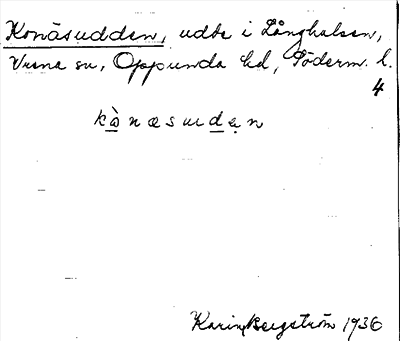 Konäsudden, udde i Långhalsen,
Vrena sn, Oppunda hd, Söderm. l.
4
kὰnæsudẹn
Karin Bergström 1936